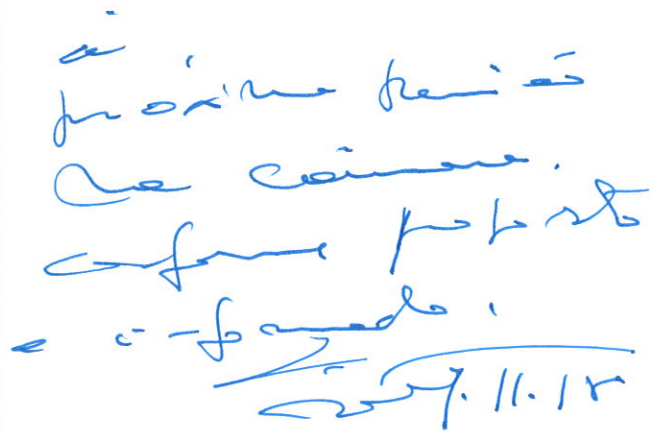 à
próxima reunião
da Câmara.
conforme proposto
e informado.
7.11.18